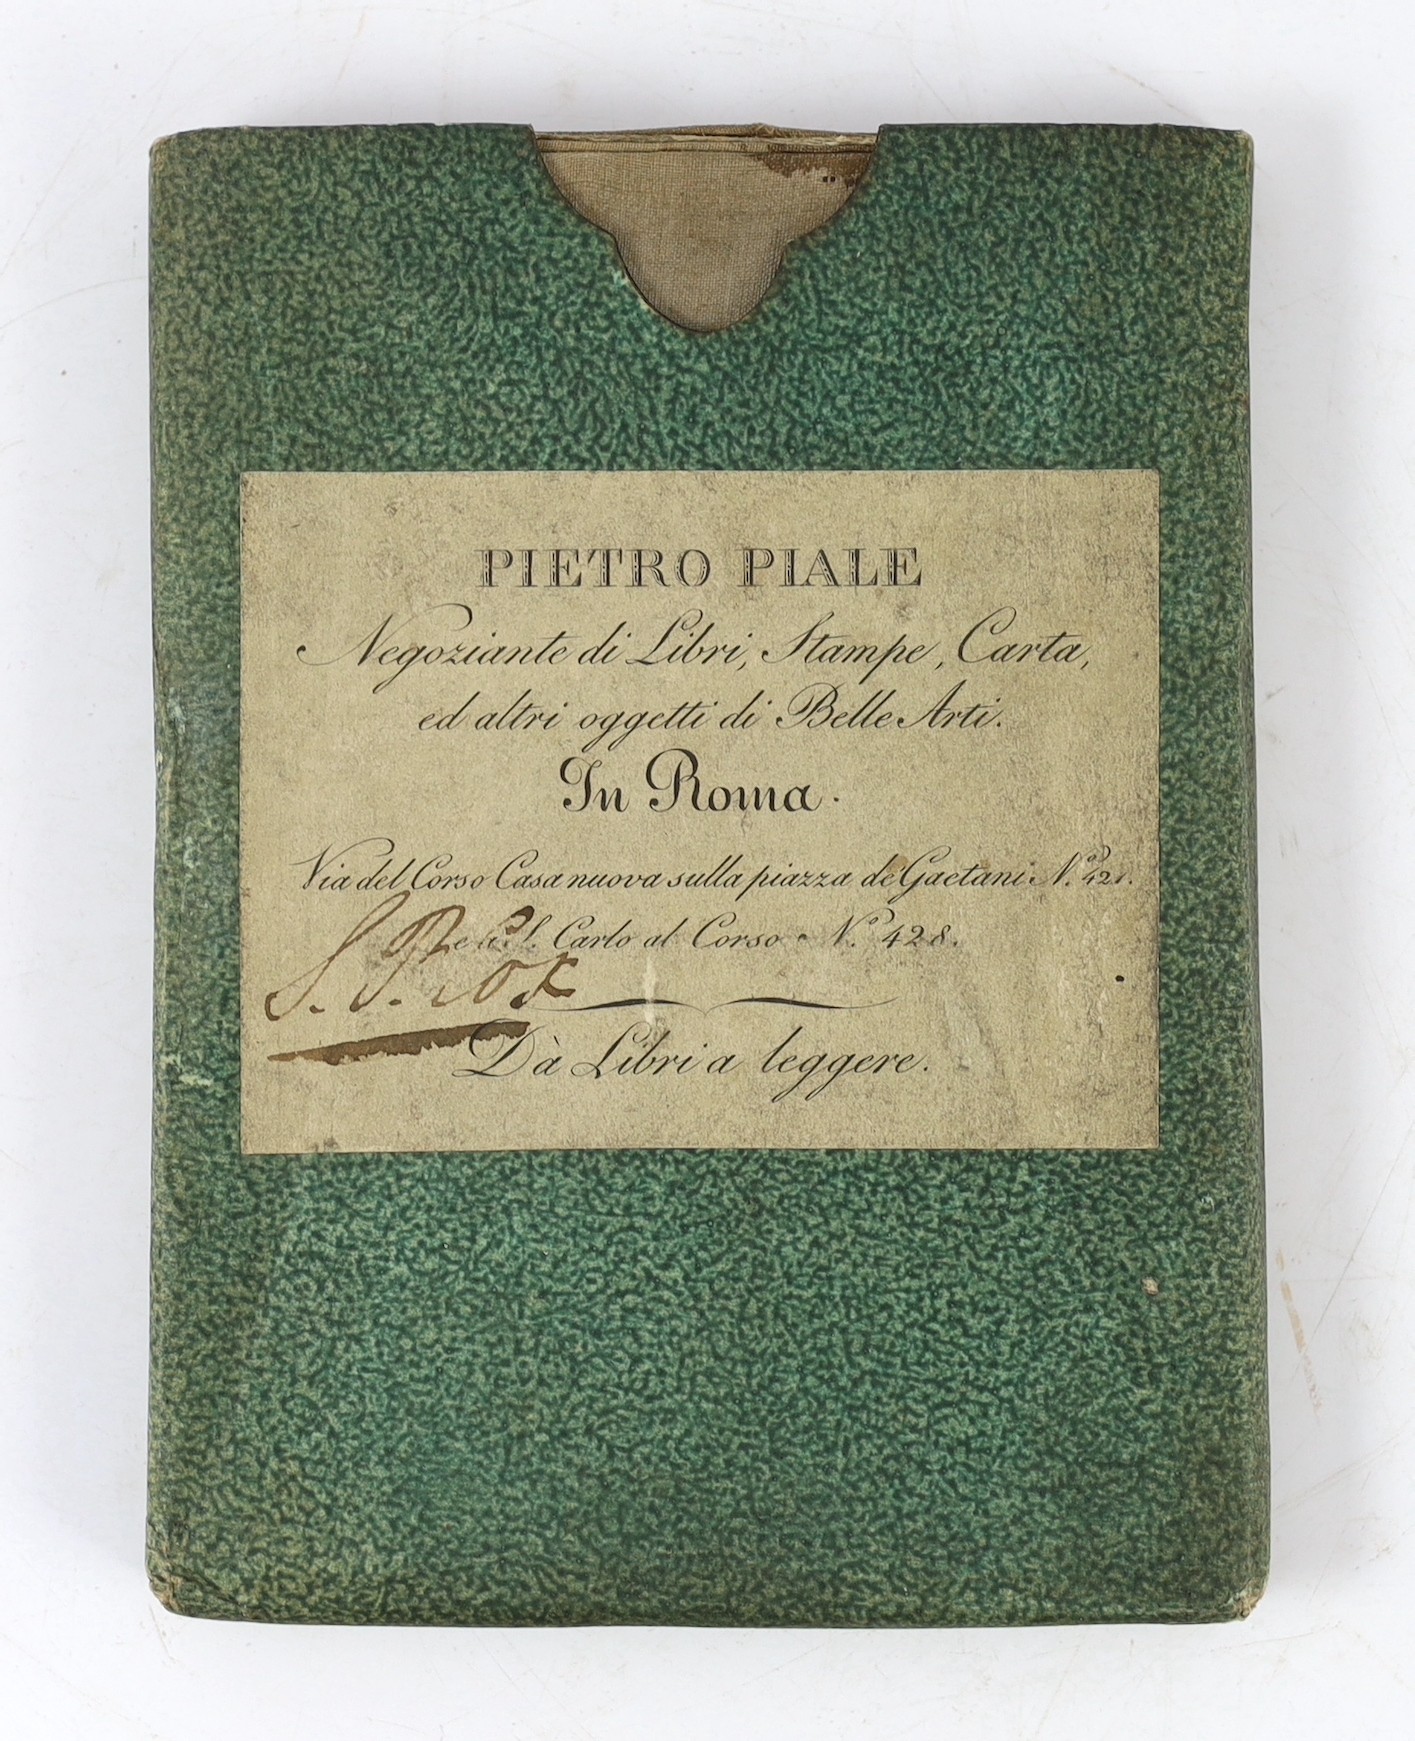 PIETRO PIALE
Negoziante di Libri, Stampe, Carta,
ed altri oggetti di Belle Arti.
In Roma.
Via del Corso Casa nuova sulla piazza de Gaetani N.º 421.
e a S. Carlo al Corso N.º 428.
S. P. Cox
Dà Libri a leggere.